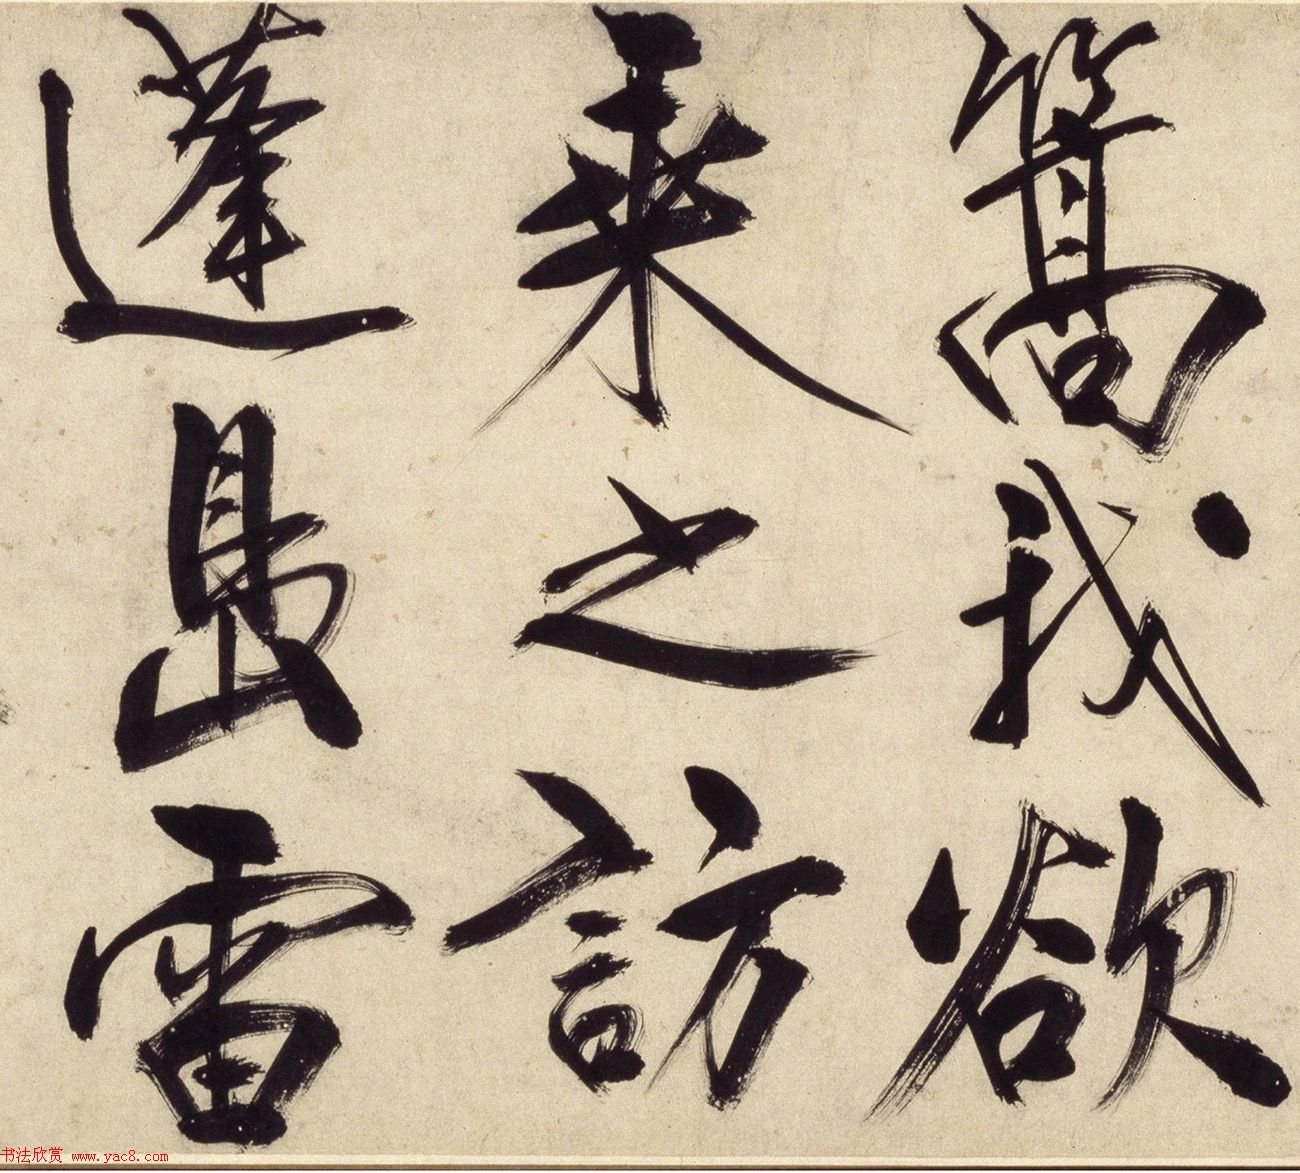 篙我欲
乗之訪
蓬島雷
书法欣赏 www.yac8.com